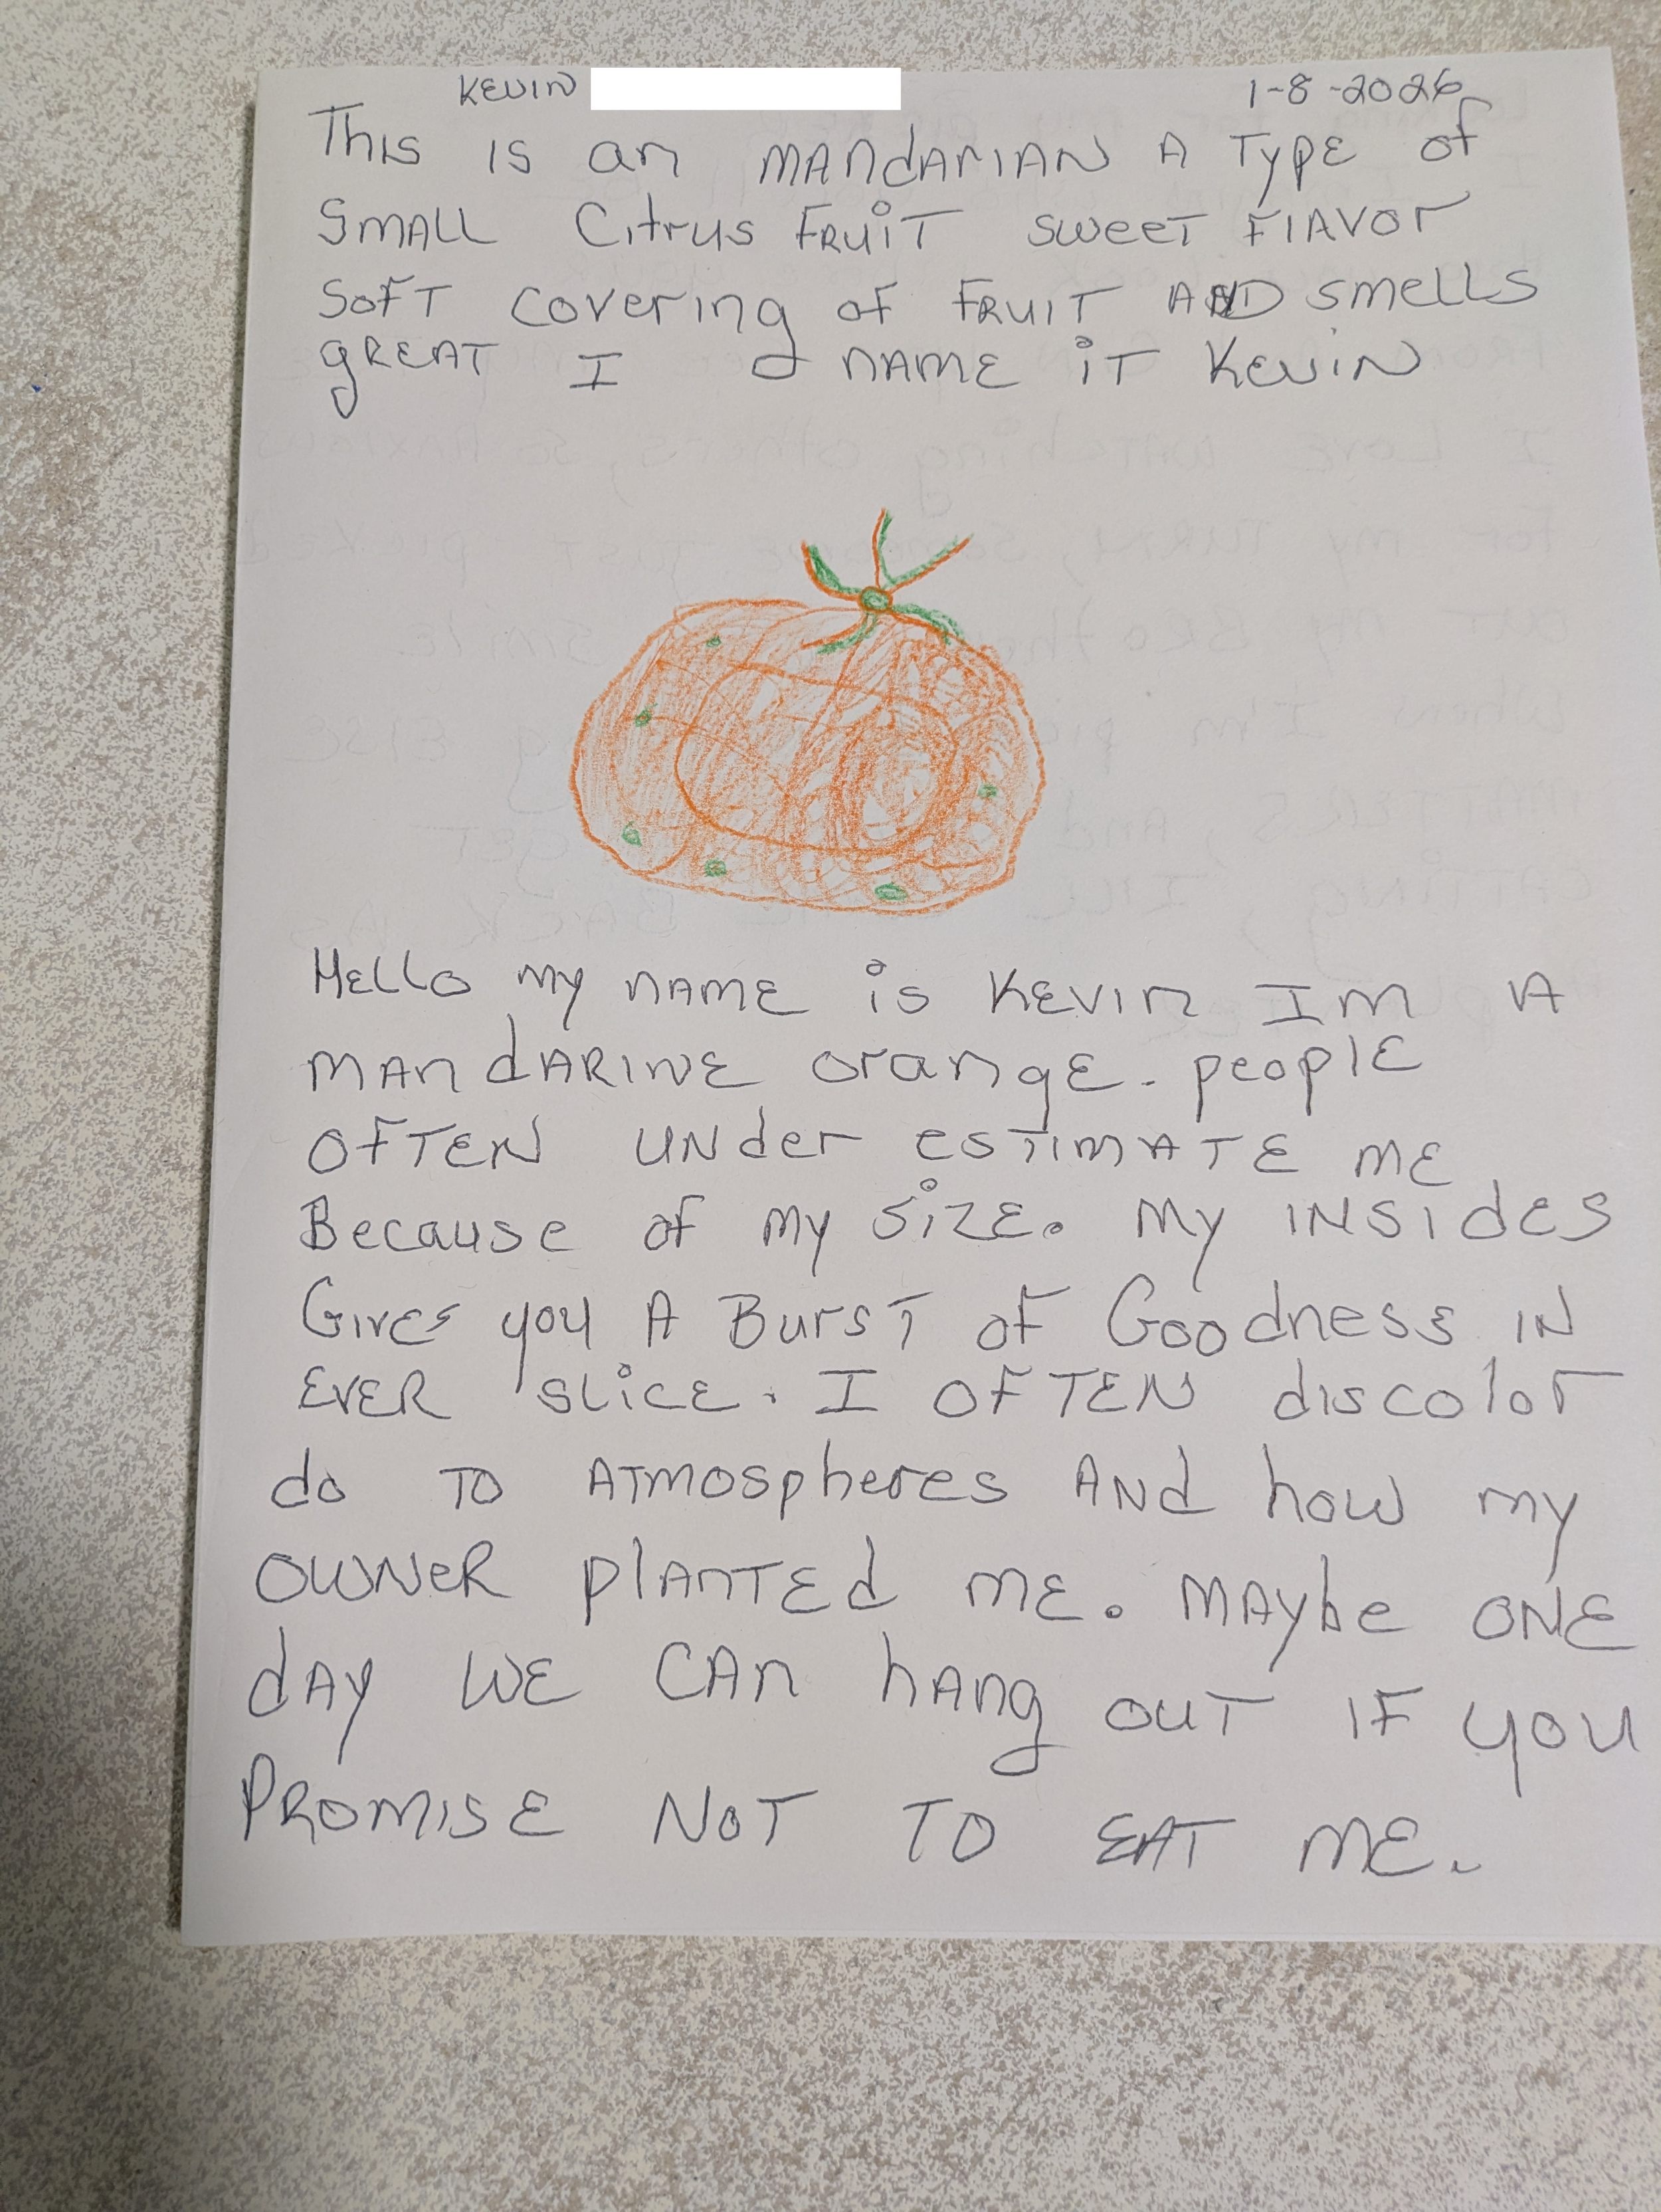 KEVIN 1-8-2026
This is an MANDARIAN A Type of
SMALL Citrus FRUIT sweet FlAVOr
SOFT covering of FRUIT AND smells
gREAT I NAME iT KEVIN
HELLO my NAME is KEVIN IM A
MANDARINE orangE. pEOplE
OFTEN UNder ESTIMATE ME
Because of my SIZE. My INSIDES
Gives you A BursT of Goodness IN
EVER SLICE. I OFTEN discolor
do TO ATmospheres ANd how my
OWNER plANTEd ME. MAybe ONE
dAy WE CAN hANg OUT IF you
PROMISE NOT TO EAT ME.